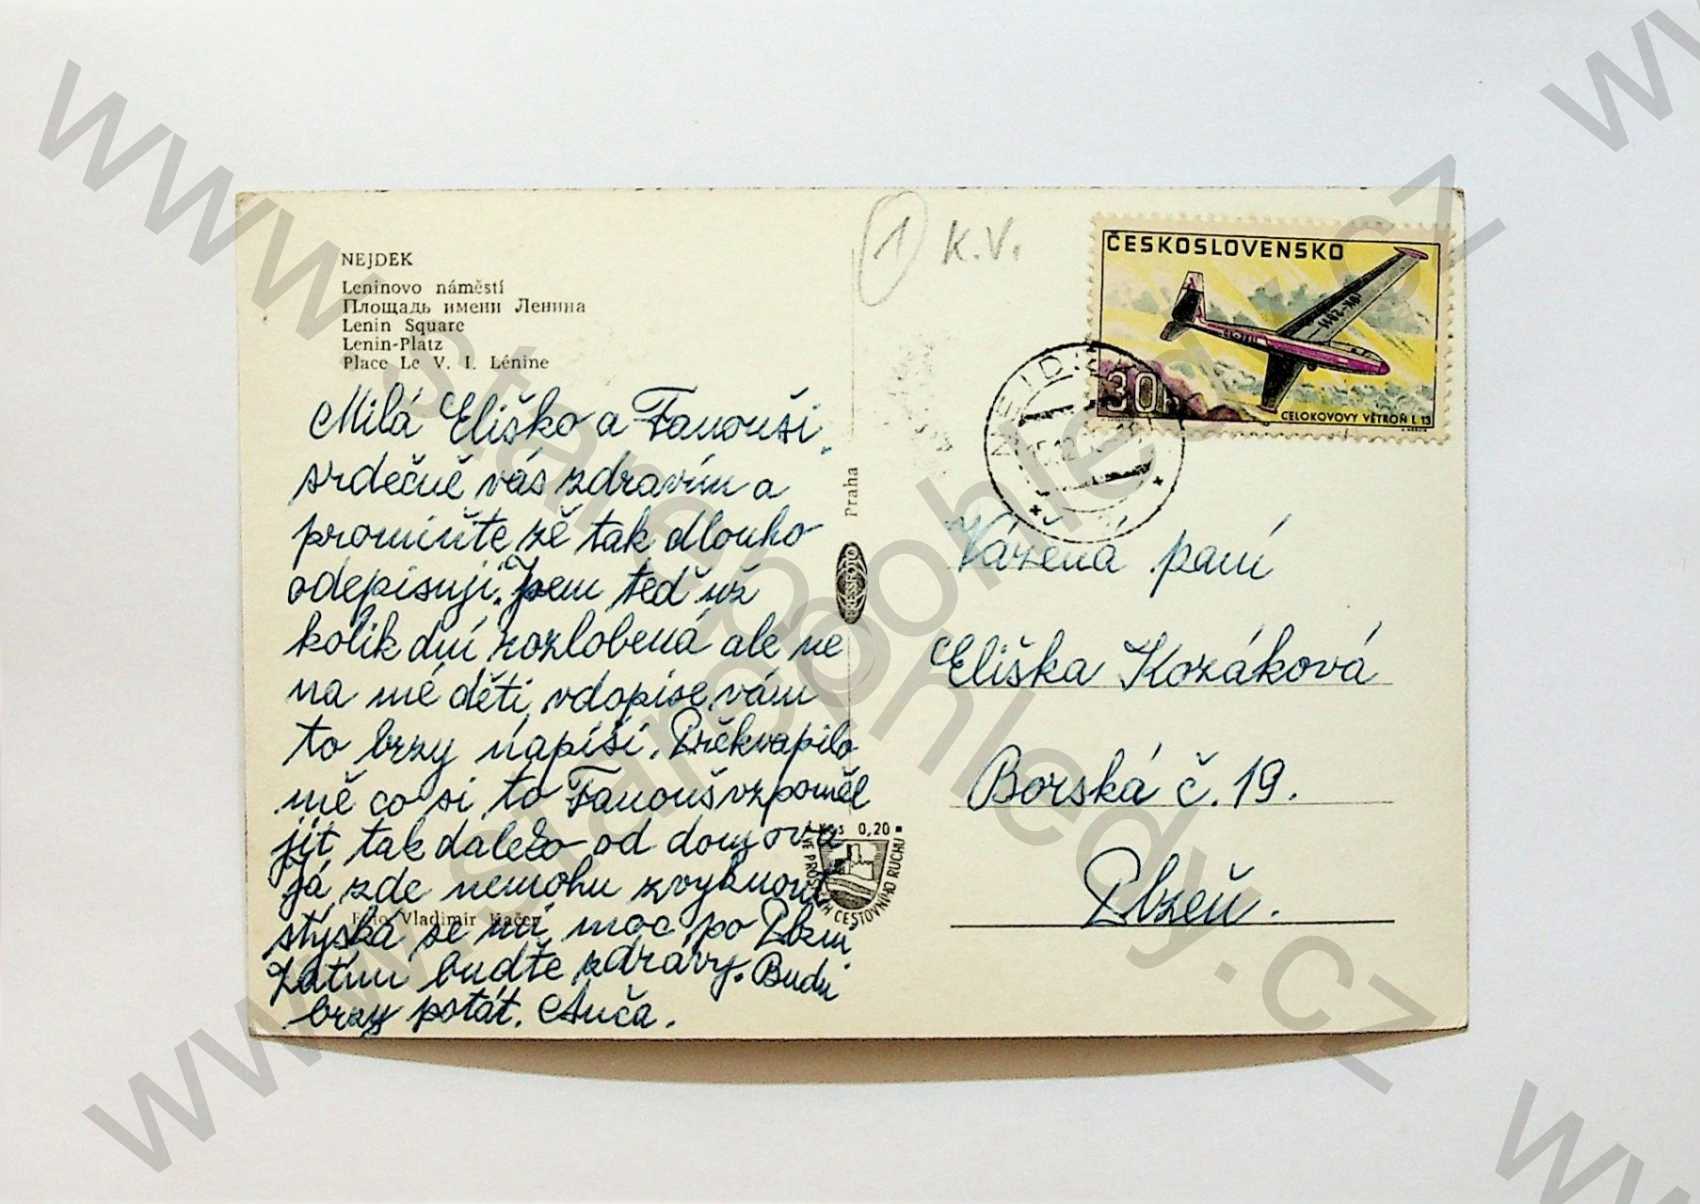 NEJDEK
Leninovo náměstí
Площадь имени Ленина
Lenin Square
Lenin-Platz
Place Le V. I. Lénine
Milá Eliško a Fanouši,
srdečně vás zdravím a
promiňte zě tak dlouho
odepisuji. Jsem teď už
kolik dní rozlobená ale ne
na mé děti, vdopise vám
to brzy napíši. Přěkvapilo
mě co si to Fanouš vzpoměl
jít tak daleko od domova
já zde nemohu zvyknout
stýská se mi moc po Plzni,
Zatím buďte zdrávy. Budu
brzy psát. Anča.
Foto Vladimír
Praha
PRESSFOTO
Kčs 0,20
VE PROSPĚCH CESTOVNÍHO RUCHU
1 K.V.
ČESKOSLOVENSKO
OK-3211
30h
CELOKOVOVÝ VĚTROŇ L 13
NEJDEK
Vážená paní
Eliška Kozáková
Borská č. 19.
Plzeň.
www.staropohledy.cz
www.staropohledy.cz